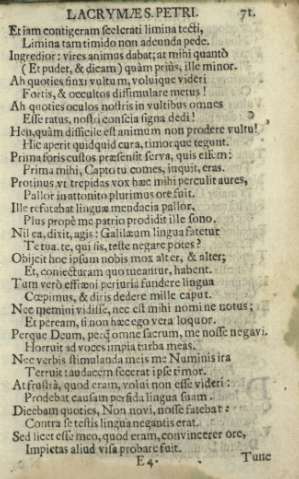 LACRYMÆ S. PETRI. 71.
Et iam contigeram scelerati limina tecti,
Limina tam timido non adeunda pede.
Ingredior: vires animus dabat; at mihi quantò
(Et pudet, & dicam) quàm priùs, ille minor.
Ah quoties finxi vultum, voluique videri
Fortis, & occultos dissimulare metus!
Ah quoties oculos nostris in vultibus omnes
Esse ratus, nosti conscia signa dedi!
Heu, quàm difficile est animum non prodere vultu!
Hic aperit quidquid cura, timorque tegunt.
Prima foris custos præsensit serva, quis essem:
Prima mihi, Capto tu comes, inquit, eras.
Protinus vt trepidas vox hæc mihi perculit aures,
Pallor in attonito plurimus ore fuit.
Ille refutabat linguæ mendacia pallor,
Plus propè me patrio prodidit ille sono.
Nil ea, dixit, agis: Galilæum lingua fatetur
Te tua. te, qui sis, teste negare potes?
Objicit hoc ipsum nobis mox alter, & alter;
Et, coniecturam quo tueantur, habent.
Tum verò effræni periuria fundere lingua
Cœpimus, & diris dedere mille caput.
Nec memini vidisse, nec est mihi nomine notus;
Et peream, si non hæc ego vera loquor.
Perque Deum, perq́ omne sacrum, me nosse negavi.
Horruit ad voces impia turba meas.
Nec verbis stimulanda meis me Numinis ira
Terruit: audacem fecerat ipse timor.
At frustrà, quod eram, volui non esse videri:
Prodebat causam perfida lingua suam.
Dicebam quoties, Non novi, nosse fatebar:
Contra se testis lingua negantis erat.
Sed licet esse meo, quod eram, convincerer ore,
Impietas aliud visa probare fuit.
E 4. Tunc